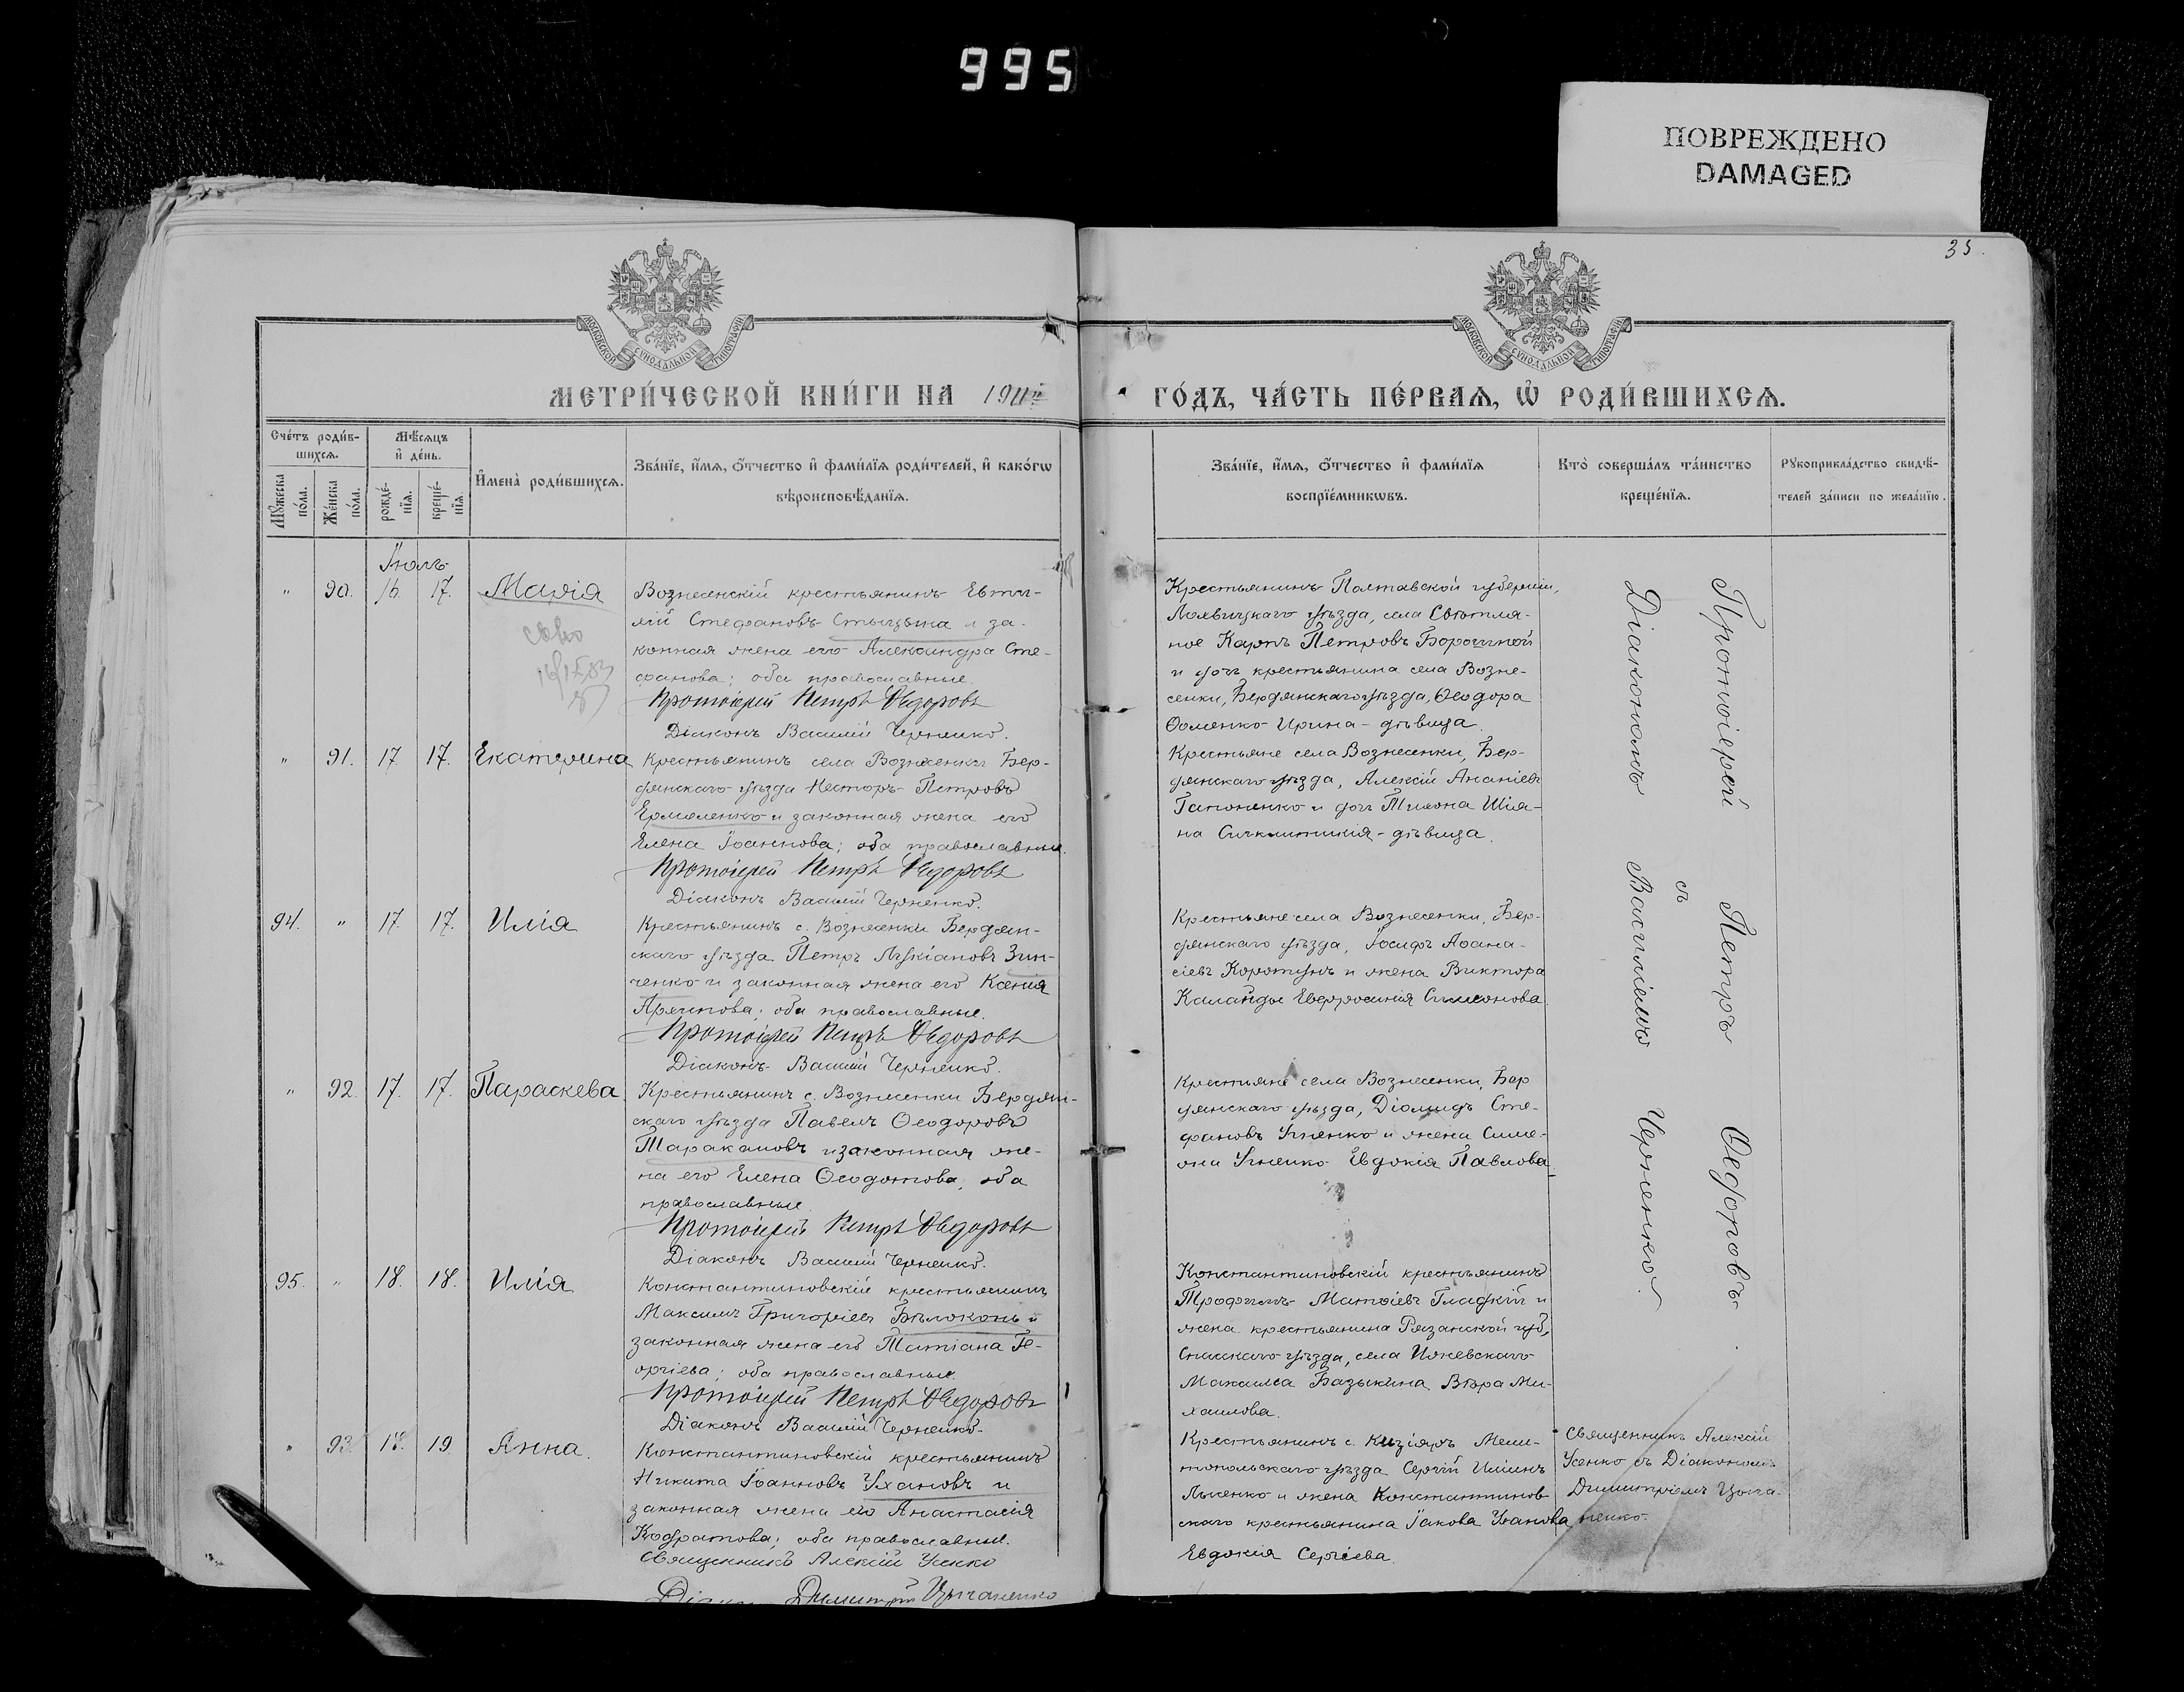 995
ПОВРЕЖДЕНО
DAMAGED
35.
МОСКОВСКОЙ СѴНОДАЛЬНОЙ ТИПОГРАФІИ
МОСКОВСКОЙ СѴНОДАЛЬНОЙ ТИПОГРАФІИ
МЕТРИ́ЧЕСКОЙ КНИ́ГИ НА
ГО́ДЪ, ЧА́СТЬ ПЕ́РВАѦ, Ѡ҆ РОДИ́ВШИХСѦ.
Сче́тъ роди́в-
шихсѧ.
Мѣ́сѧцъ
и҆ де́нь.
Мꙋ́жеска
по́ла.
Же́нска
по́ла.
рожде́-
нїѧ.
креще́-
нїѧ.
И҆мена̀ роди́вшихсѧ.
Зва́нїе, и҆́мѧ, ѻ҆́тчество и҆ фами́лїѧ роди́телей, и҆ како́гѡ
вѣроисповѣ́данїѧ.
Зва́нїе, и҆́мѧ, ѻ҆́тчество и҆ фами́лїѧ
воспрїе́мникѡвъ.
Кто̀ соверша́лъ та́инство
креще́нїѧ.
Рꙋкоприкла́дство свидѣ́-
телей за́писи по жела́нїю.
Іюль
" 90. 16. 17. Марія
Вознесенскій крестьянинъ Евти-
мій Стефановъ и за-
конная жена его Александра Сте-
фанова; оба православные.
Протоіерей Петръ Ѳедоровъ
Діаконъ Василій Черненко.
Крестьянинъ Полтавской губерніи,
Лохвицкаго уѣзда, села Свѣтля-
ное Карпъ Петровъ
и дочь крестьянина села Возне-
сенки, Бердянскаго уѣзда, Ѳеодора
Ѳоменко Ирина - дѣвица.
" 91. 17. 17. Екатерина
Крестьянинъ села Вознесенки Бер-
дянскаго уѣзда Несторъ Петровъ
Ермоленко и законная жена его
Елена Іоаннова; оба православные.
Протоіерей Петръ Ѳедоровъ
Діаконъ Василій Черненко.
Крестьяне села Вознесенки, Бер-
дянскаго уѣзда, Алексій Ананіевъ
Гапоненко и дочь Тихона Шія-
на - дѣвица.
94. " 17. 17. Илія
Крестьянинъ с. Вознесенки Бердян-
скаго уѣзда Петръ Лукіановъ Зин-
ченко и законная жена его Ксенія
оба православные.
Протоіерей Петръ Ѳедоровъ
Діаконъ Василій Черненко.
Крестьяне села Вознесенки, Бер-
дянскаго уѣзда, Іосифъ Аѳана-
сіевъ Коротунъ и жена Виктора
Каланды Евфросинія Симеонова.
" 92. 17. 17. Параскева
Крестьянинъ с. Вознесенки Бердян-
скаго уѣзда Павелъ Ѳеодоровъ
Таракановъ и законная же-
на его Елена Ѳеодотова, оба
православные.
Протоіерей Петръ Ѳедоровъ
Діаконъ Василій Черненко.
Крестьяне села Вознесенки, Бер
дянскаго уѣзда, Діомидъ Сте-
фановъ и жена Симе-
она Евдокія Павлова
95. " 18. 18. Илія
Константиновскій крестьянинъ
Максимъ Григоріевъ Бѣлоконь и
законная жена его Татіана Ге-
оргіева; оба православные.
Протоіерей Петръ Ѳедоровъ
Діаконъ Василій Черненко.
Константиновскій крестьянинъ
Трофимъ Матѳіевъ Гладкій и
жена крестьянина Рязанской губ,
Спасскаго уѣзда, села Ижевскаго
Максима Базыкина Вѣра Ми-
хаилова.
" 93. 18. 19 Анна.
Константиновскій крестьянинъ
Никита Іоанновъ Ухановъ и
законная жена его Анастасія
Кодратова; оба православные.
Священникъ Алексій Усенко
Димитрій Цыганенко
Крестьянинъ с. Кизіяръ Мели-
топольскаго уѣзда Сергій
Лысенко и жена Константинов
скаго крестьянина Іакова Уханова
Евдокія Сергіева.
Протоіерей Петръ Ѳедоровъ
съ
Діакономъ Василіемъ Черненко.
Священникъ Алексій
Усенко съ Діакономъ
Димитріемъ Цыга-
ненко.